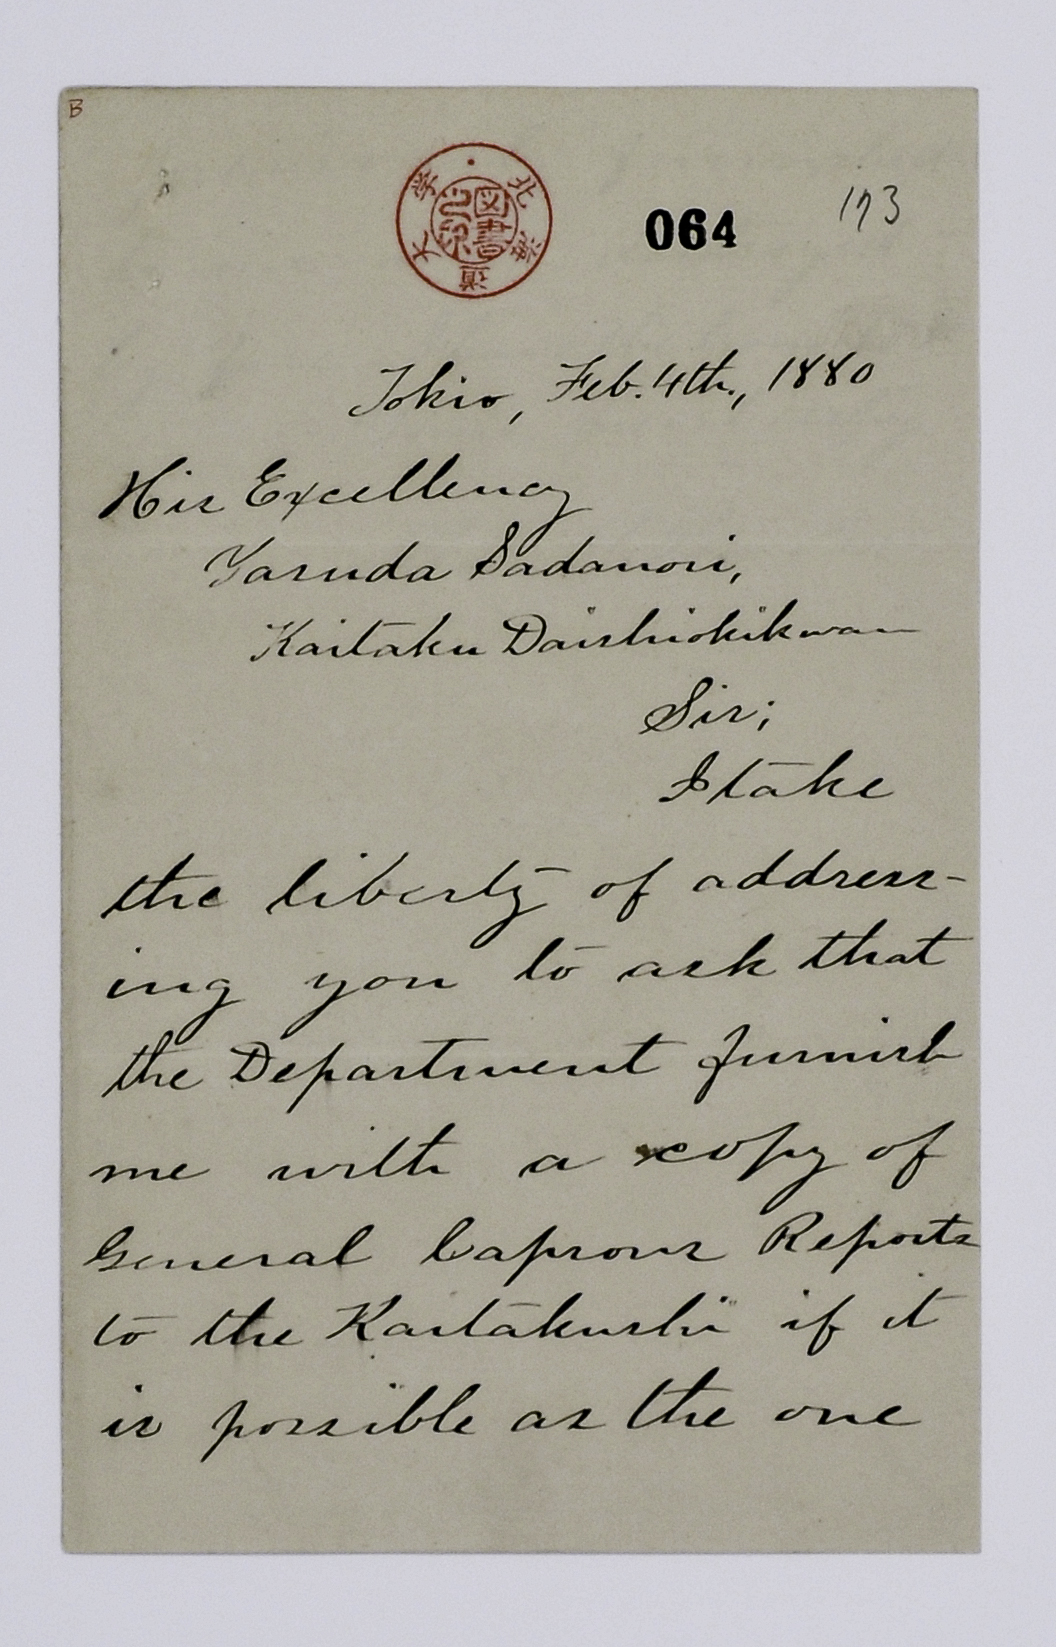 B
北海道大学
図書之印
064
173
Tokio, Feb. 4th., 1880
His Excellency
Yasuda Sadanori,
Kaitaku Daishiokikwan
Sir;
I take
the liberty of address-
ing you to ask that
the Department furnish
me with a copy of
General Caprons Reports
to the Kaitakushi if it
is possible as the one